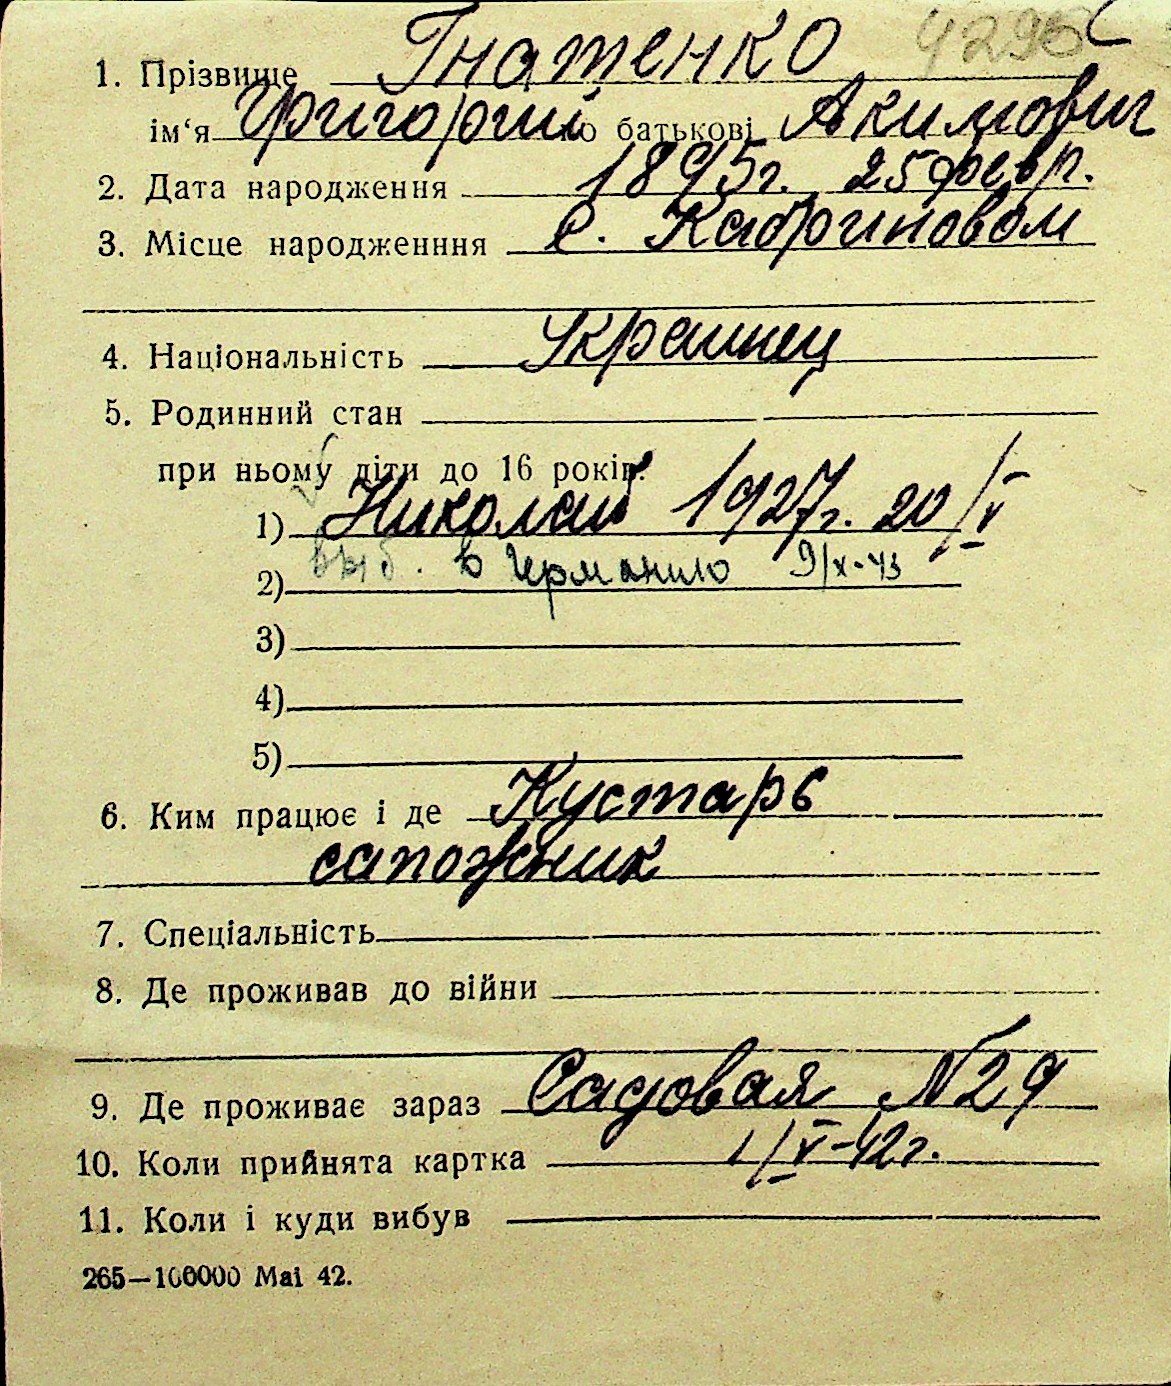 4296
1. Прізвище Гнатенко
ім‘я Григорий по батькові Акимович
2. Дата народження 1895г. 25 февр.
3. Місце народженння с.
4. Національність Украинец
5. Родинний стан
при ньому діти до 16 років:
1) Николай 1927г. 20/V
2) выб. в Германию 9/X-43
3)
4)
5)
6. Ким працює і де Кустарь
сапожник
7. Спеціальність
8. Де проживав до війни
9. Де проживає зараз Садовая №29
10. Коли прийнята картка 1/V-42г.
11. Коли і куди вибув
265—100000 Mai 42.